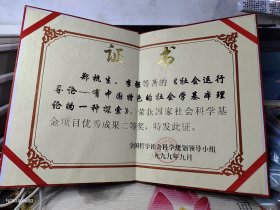 证书
郑杭生、李强等著的《社会运行
导论—有中国特色的社会学基本理
论的一种探索》,荣获国家社会科学基
金项目优秀成果二等奖,特发此证。
全国哲学社会科学规划领导小组
一九九九年九月